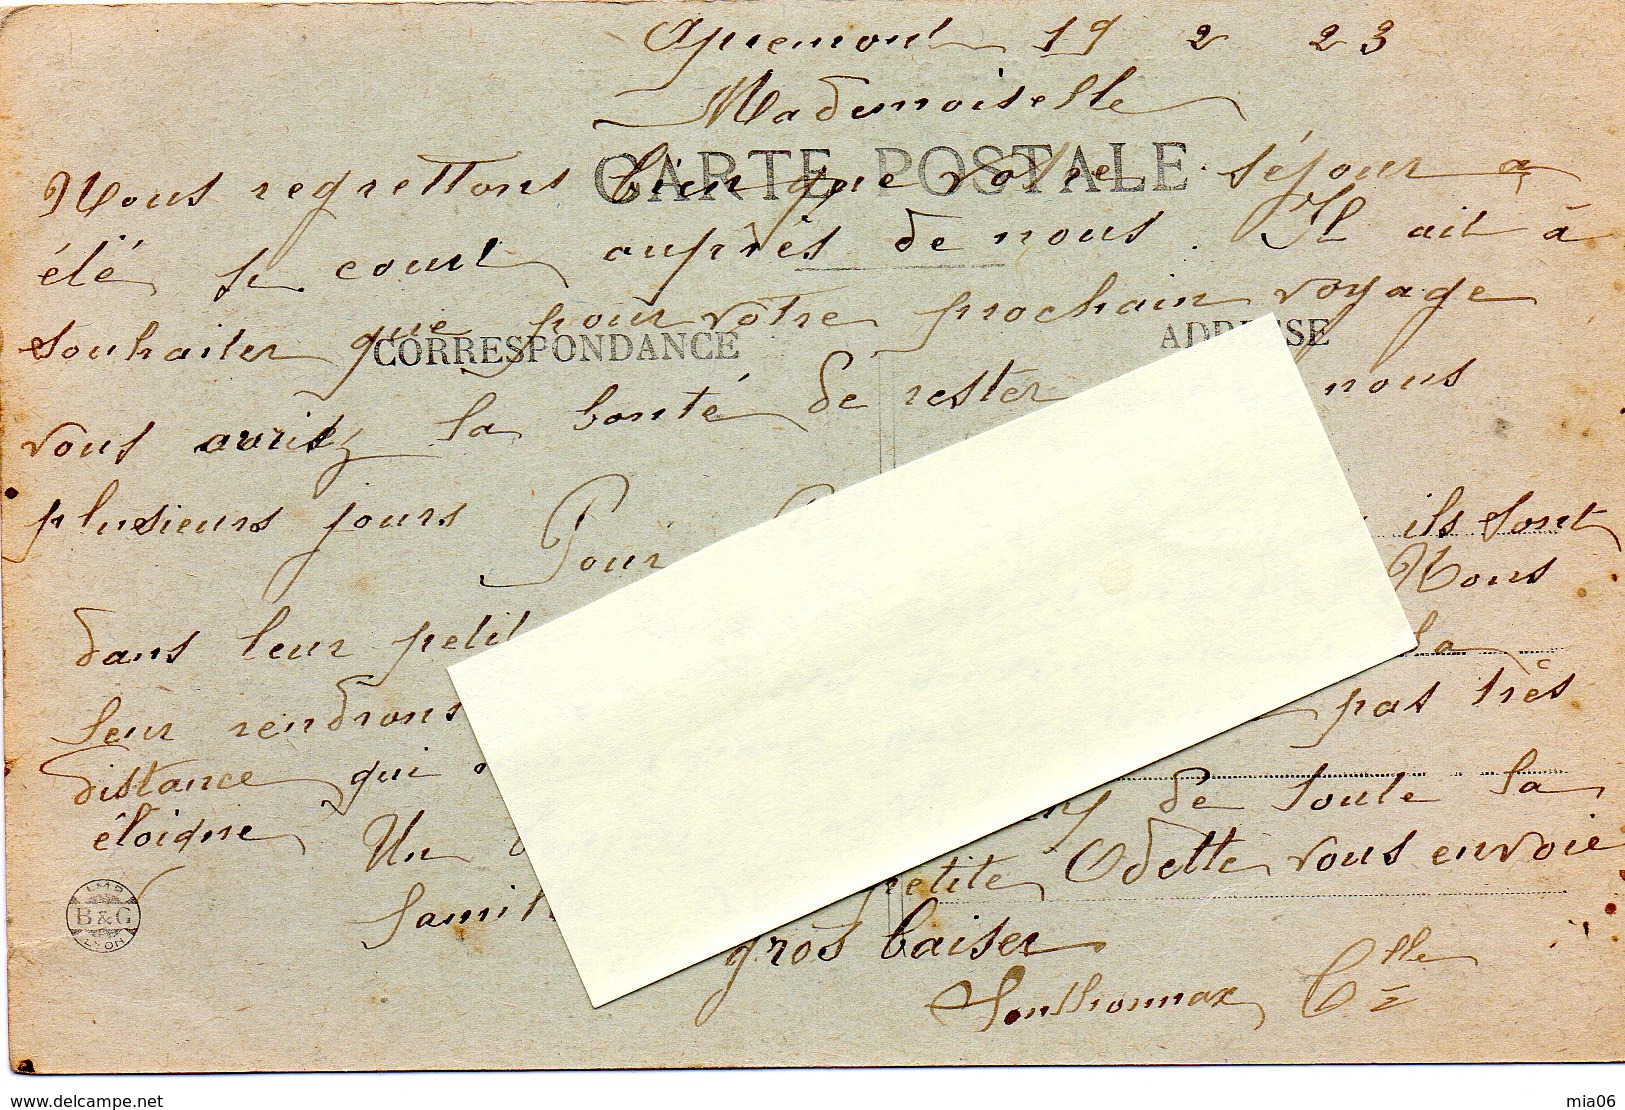 Apremont 19 2 23
Mademoiselle
CARTE POSTALE
Nous regrettons bien que votre séjour a
été si court auprès de nous. Il ait à
souhaiter que pour votre prochain voyage
CORRESPONDANCE ADRESSE
vous auriez la bonté de rester nous
plusieurs jours Pour ils sont
dans leur petit Nous
leur rendrons la
distance qui pas très
éloigne Un de toute la
famille petite Odette vous envoie
gros baiser
Sonthonnax Clle
IMP B&G LYON
www.delcampe.net
mia06